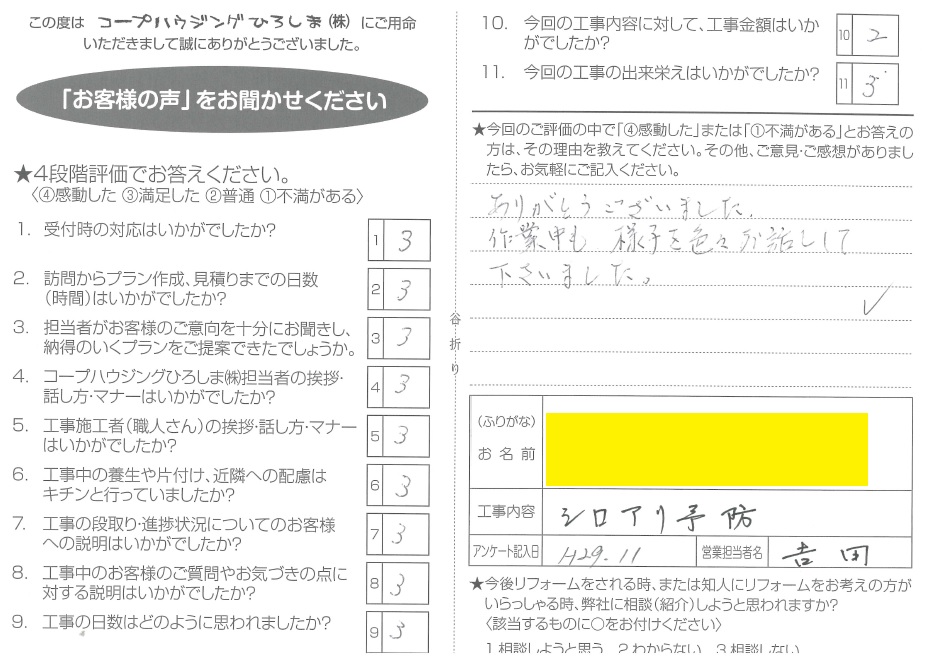 この度は コープハウジングひろしま(株) にご用命
いただきまして誠にありがとうございました。
「お客様の声」をお聞かせください
★4段階評価でお答えください。
〈④感動した ③満足した ②普通 ①不満がある〉
1. 受付時の対応はいかがでしたか?
1 3
2. 訪問からプラン作成、見積りまでの日数
(時間)はいかがでしたか?
2 3
3. 担当者がお客様のご意向を十分にお聞きし、
納得のいくプランをご提案できたでしょうか。
3 3
4. コープハウジングひろしま㈱担当者の挨拶・
話し方・マナーはいかがでしたか?
4 3
5. 工事施工者(職人さん)の挨拶・話し方・マナー
はいかがでしたか?
5 3
6. 工事中の養生や片付け、近隣への配慮は
キチンと行っていましたか?
6 3
7. 工事の段取り・進捗状況についてのお客様
への説明はいかがでしたか?
7 3
8. 工事中のお客様のご質問やお気づきの点に
対する説明はいかがでしたか?
8 3
9. 工事の日数はどのように思われましたか?
9 3
谷折り
10. 今回の工事内容に対して、工事金額はいか
がでしたか?
10 2
11. 今回の工事の出来栄えはいかがでしたか?
11 3
★今回のご評価の中で「④感動した」または「①不満がある」とお答えの
方は、その理由を教えてください。その他、ご意見・ご感想がありまし
たら、お気軽にご記入ください。
ありがとうございました.
作業中も 様子を色々お話しして
下さいました。
(ふりがな)
お名前
工事内容 シロアリ予防
アンケート記入日 H29.11 営業担当者名 吉田
★今後リフォームをされる時、または知人にリフォームをお考えの方が
いらっしゃる時、弊社に相談(紹介)しようと思われますか?
〈該当するものに○をお付けください〉
1.相談しようと思う 2.わからない 3.相談しない